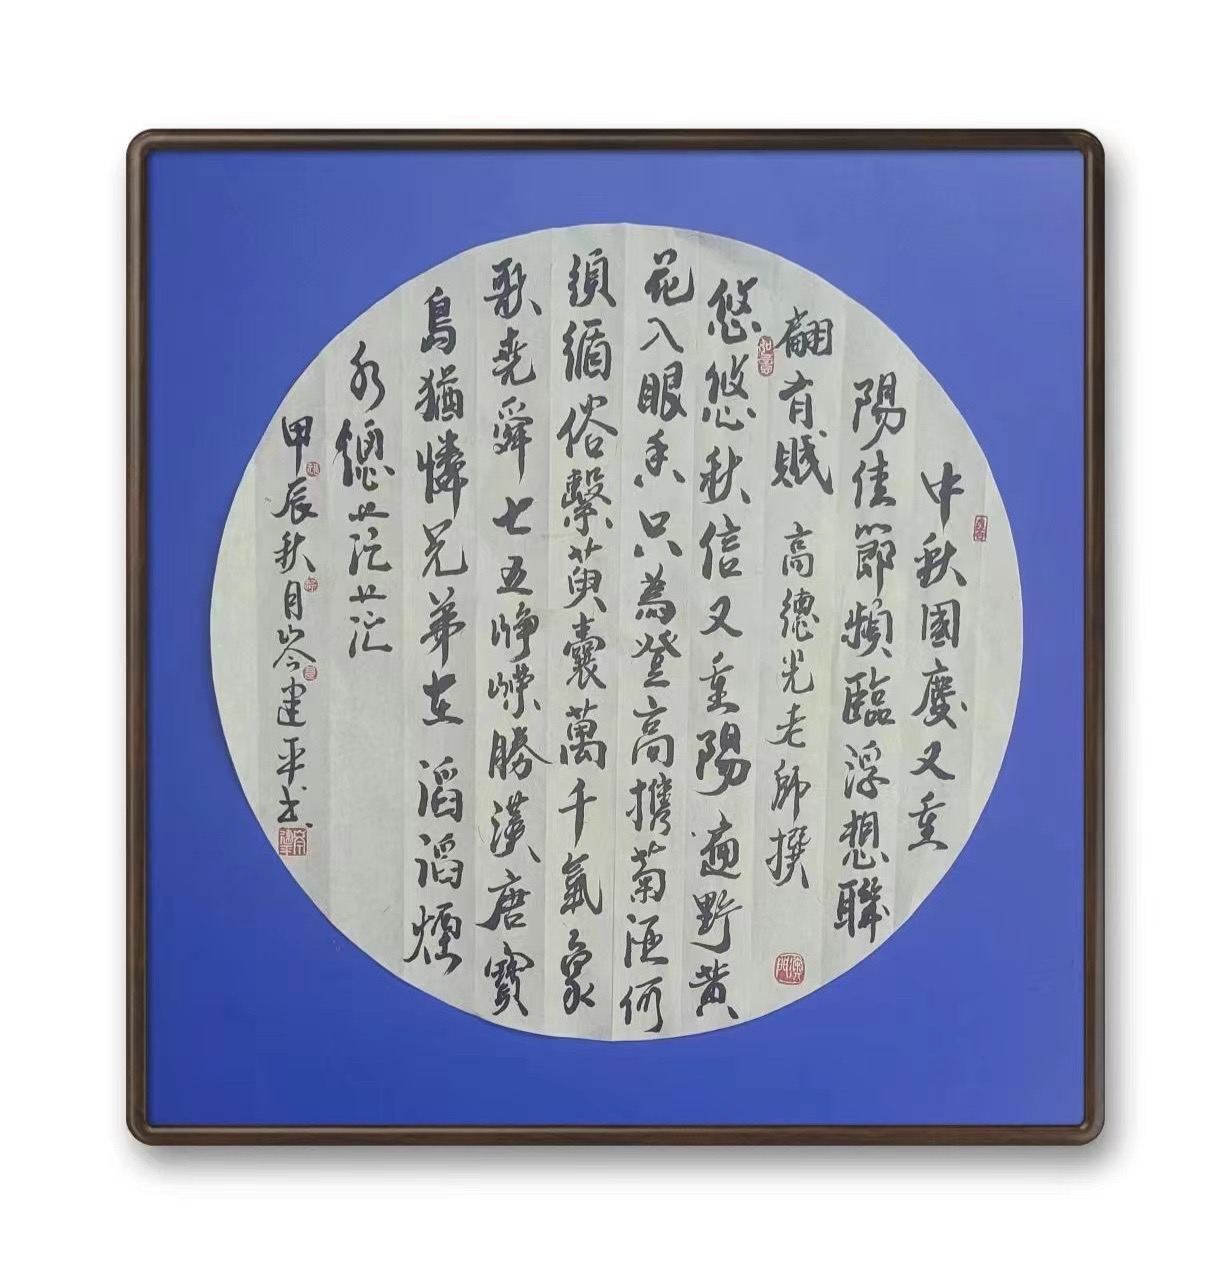 中秋國慶又重
陽佳節頻臨浮想聯
翩有賦 高德光老師撰
悠悠秋信又重陽遍野黄
花入眼香只為登高攜菊酒何
須循俗繫萸囊萬千氣象
歌堯舜七五崢嶸勝漢唐寶
島猶憐兄弟在滔滔煙
水總茫茫
甲辰秋月岑建平书